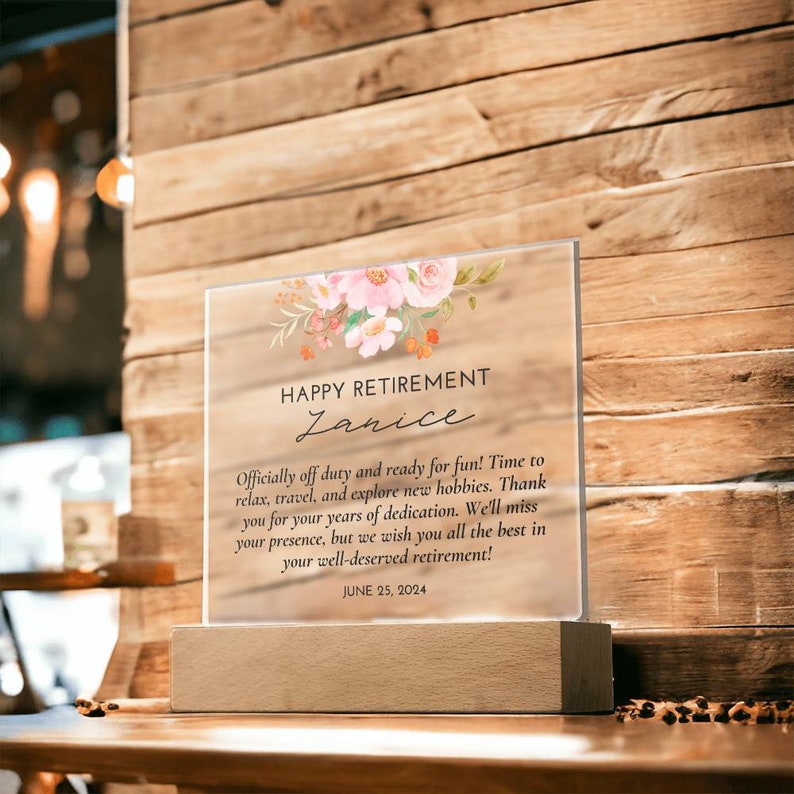 HAPPY RETIREMENT
Janice
Officially off duty and ready for fun! Time to
relax, travel, and explore new hobbies. Thank
you for your years of dedication. We'll miss
your presence, but we wish you all the best in
your well-deserved retirement!
JUNE 25, 2024